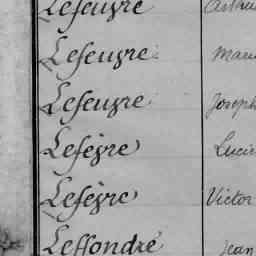 Lefeuvre
Lefeuvre
Lefeuvre Joseph
Lefèvre Lucie
Lefèvre Victor
Leffondré Jean